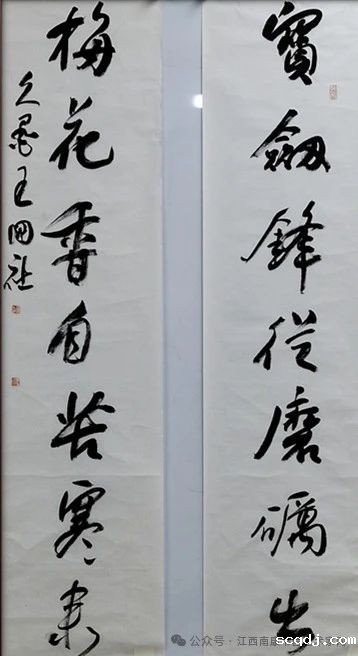 寶劔鋒從磨礪出
梅花香自苦寒來
王國社
公众号·江西南
scqdj.com